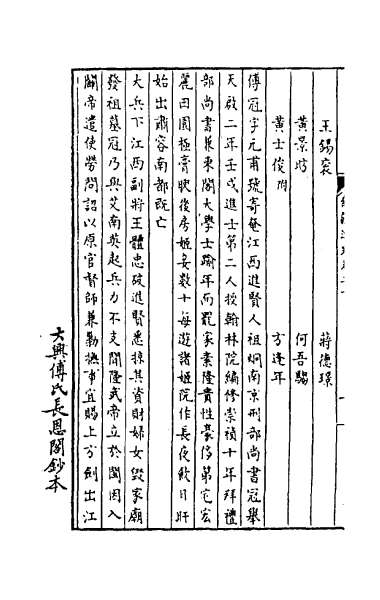 王錫袞 蔣德璟
黃景昉 何吾騶
黃士俊附 方逢年
傅冠字元甫號寄菴江西進賢人祖炯南京刑部尚書冠舉
天啟二年壬戌進士第二人授翰林院編修崇禎十年拜禮
部尚書兼東閣大學士踰年而罷家素隆貴性豪侈第宅宏
麗田園極膏腴後房姬妾數十每遊諸姬院作長夜飲日旰
始出肅客南都既亡
大兵下江西副將王體忠破進賢悉掠其資財婦女毀家廟
發祖墓冠乃與艾南英起兵力不支聞隆武帝立於閩因入
關帝遣使勞問詔以原官督師兼勦撫事宜賜上方劍出江
大興傅氏長恩閣鈔本